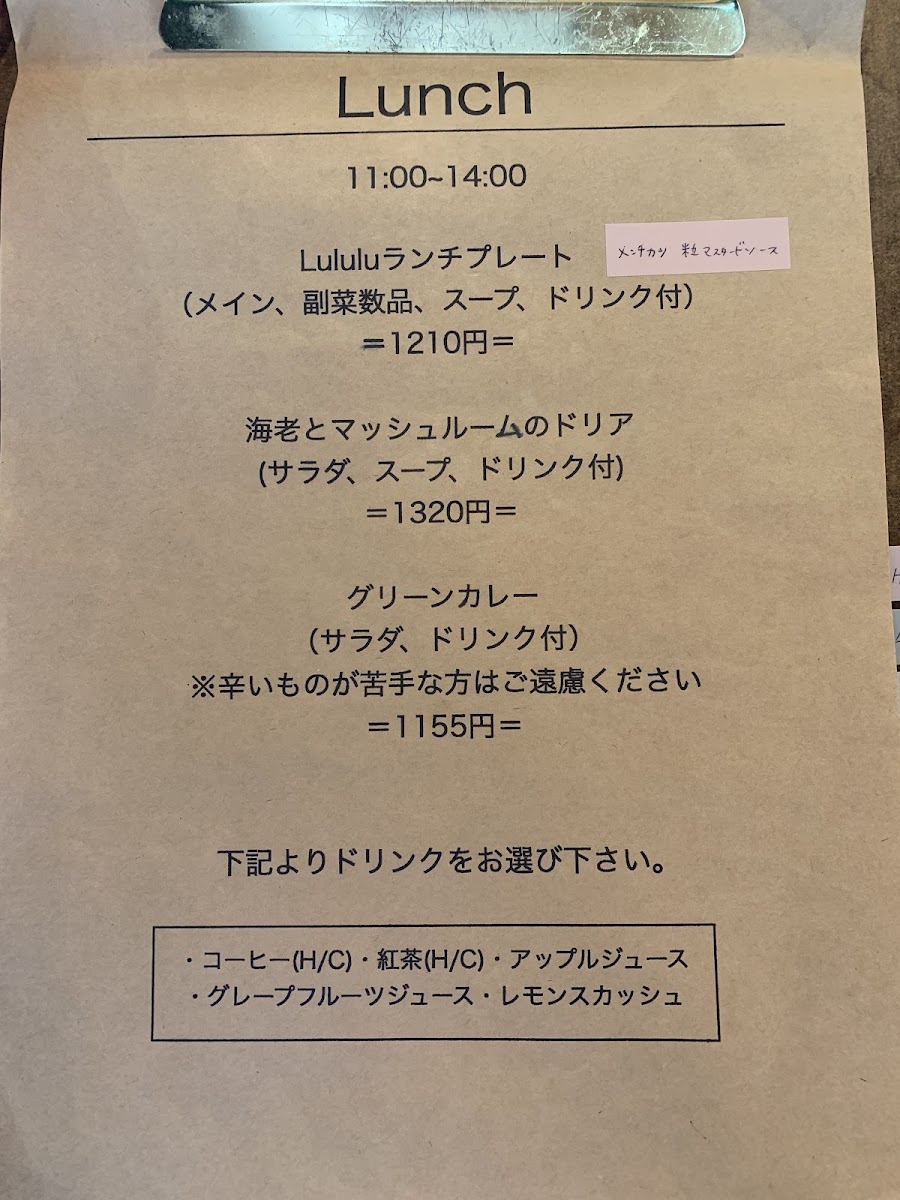 Lunch
11:00~14:00
Lululuランチプレート
メンチカツ 粒マスタードソース
（メイン、副菜数品、スープ、ドリンク付）
＝1210円＝
海老とマッシュルームのドリア
(サラダ、スープ、ドリンク付)
＝1320円＝
グリーンカレー
（サラダ、ドリンク付）
※辛いものが苦手な方はご遠慮ください
＝1155円＝
下記よりドリンクをお選び下さい。
・コーヒー(H/C)・紅茶(H/C)・アップルジュース
・グレープフルーツジュース・レモンスカッシュ